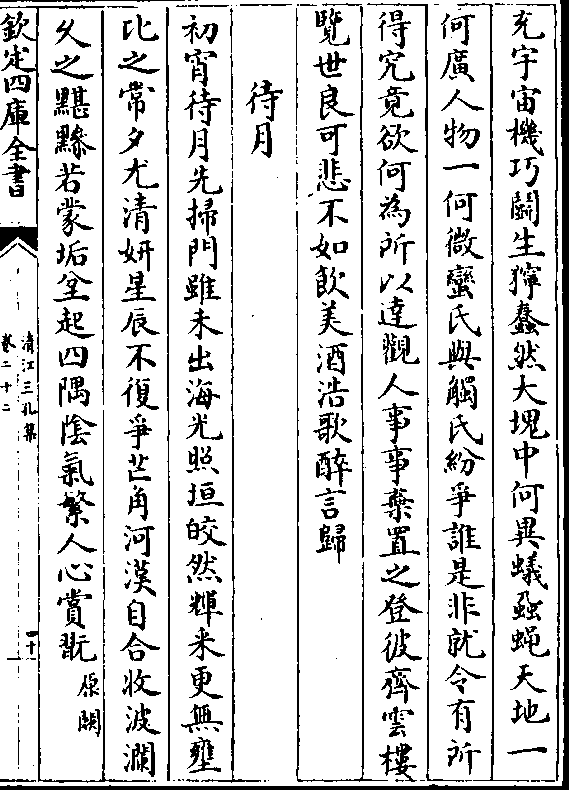 充宇宙機巧鬭生獰蠢然大塊中何異蟻蝨蝿天地一
何廣人物一何微蠻氏與觸氏紛爭誰是非就令有所
得究竟欲何為所以達觀人事事棄置之登彼齊雲樓
覽世良可悲不如飲美酒浩歌醉言歸
待月
初宵待月先掃門雖未出海光照垣皎然輝釆更無壅
比之常夕尤清妍星辰不復爭芒角河漢自合收波瀾
久之黮黲若蒙垢坌起四隅陰氣繁人心賞翫原闕
欽定四庫全書
清江三孔集
卷二十二
四十